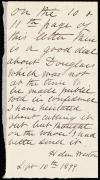 On the 10 &
11th page of
this letter there
is a good deal
about Douglass
which was not
at the time to
be made public
told in confidence
I have hesitated
about letting it
out but thought
on the whole I had
better send it
Sept 10th 1899